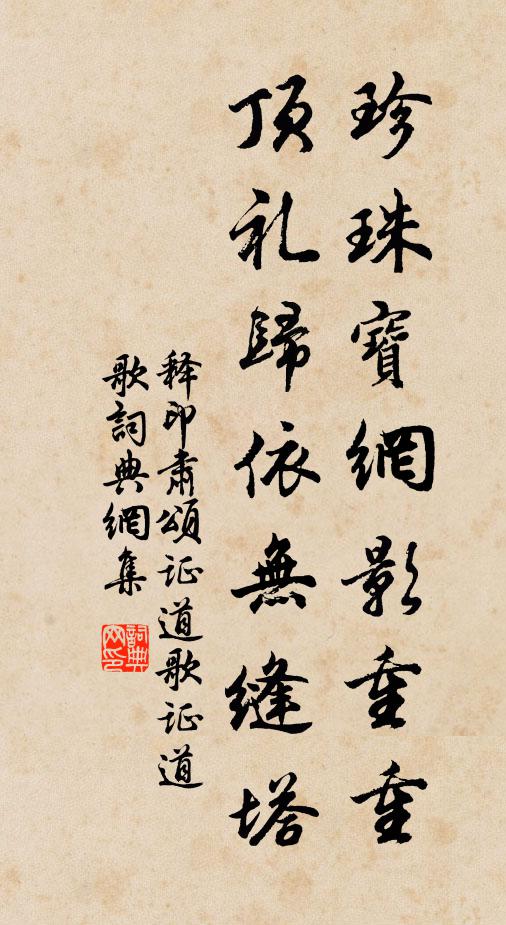 珍珠寶網影重重
頂礼歸依無縫塔
释印肅頌证道歌证道
歌詞典網集
詞典网印